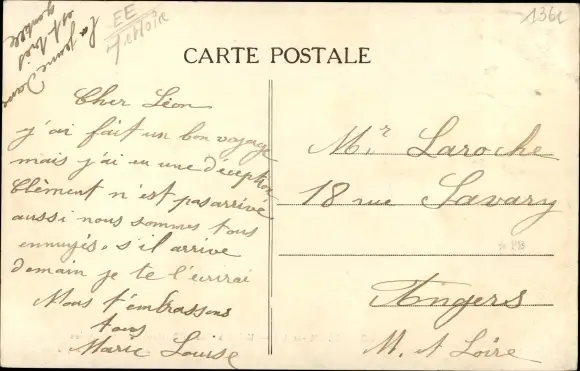 La jeune Dame
est très
gentille
EE
1361
CARTE POSTALE
Cher Léon
j'ai fait un bon voyage
mais j'ai eu une déception
Clèment n'est pas arrivé
aussi nous sommes tous
ennuyés, s'il arrive
demain je te l'écrirai
Nous t'embrassons
tous
Marie-Louise
Mr Laroche
18 rue Savary
Angers
M. et Loire